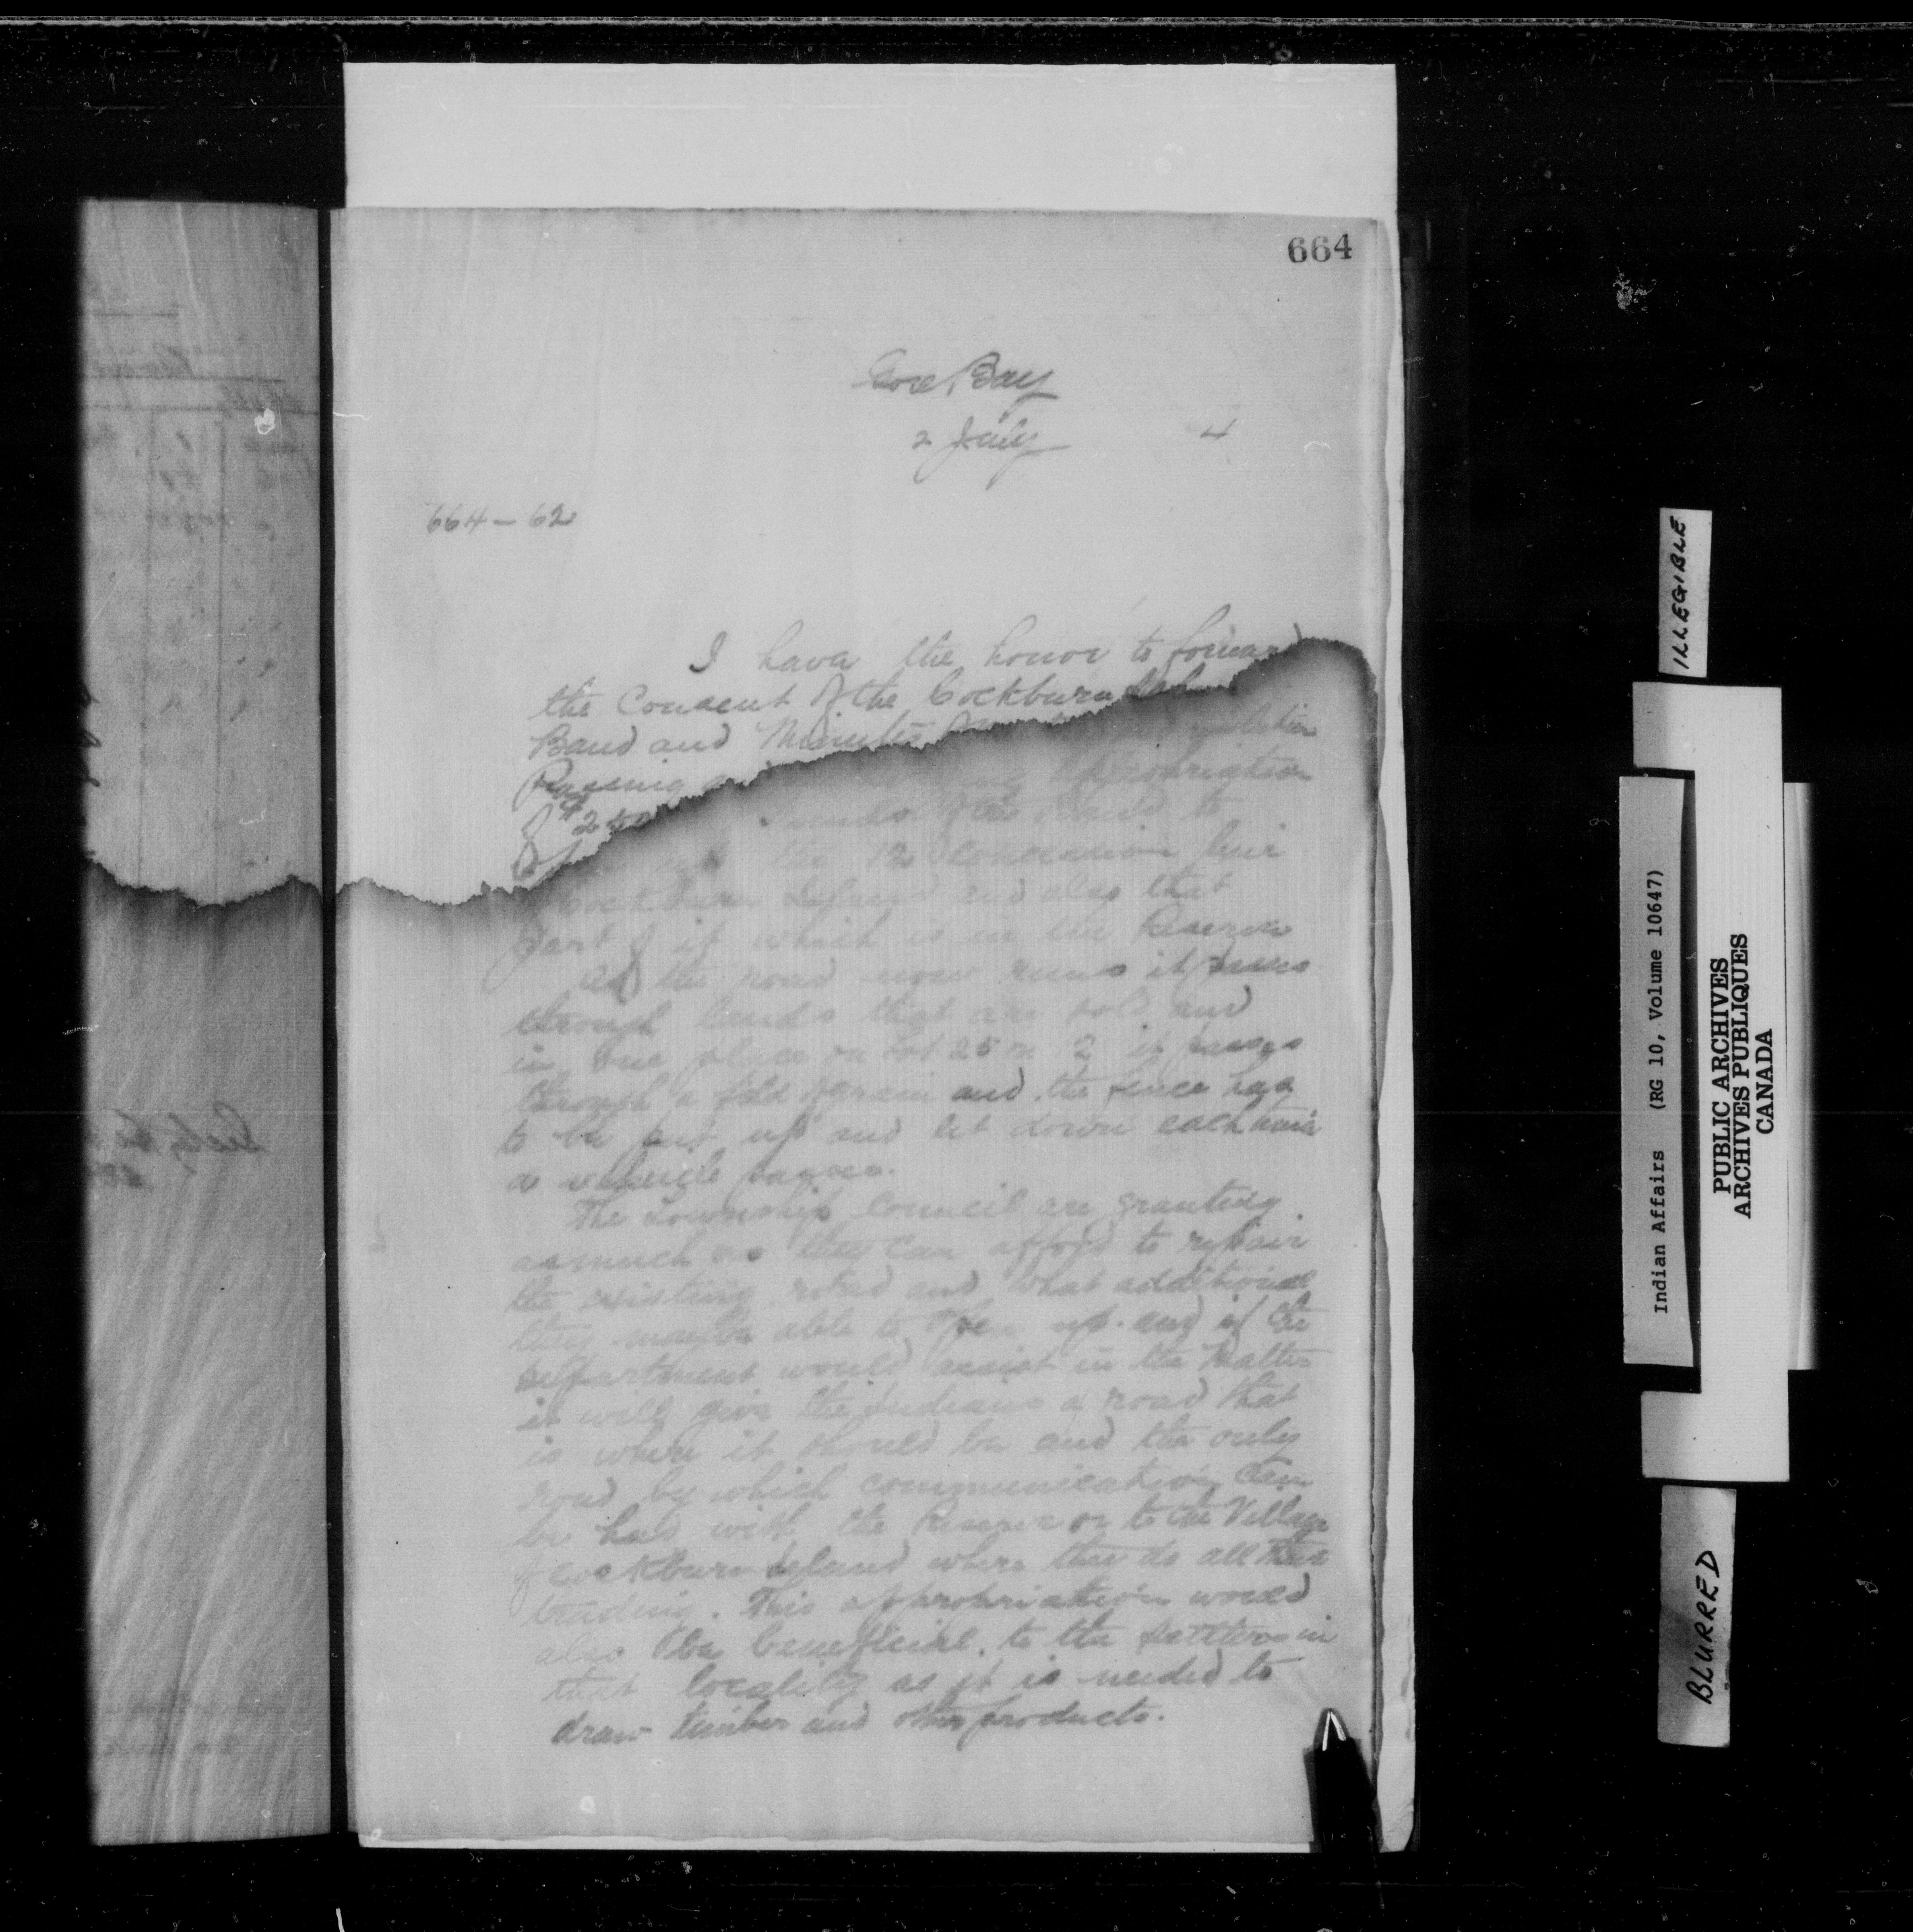 664
Gore Bay
2 July 4
664 - 62
I have the honor to forward
the Consent of the Cockburn Island
Band and Minutes
Passing appropriation
of $250 funds of the Band to
the 12 concession line
Cockburn Island and also that
part of it which is in the Reserve
As the road now runs it passes
through lands that are sold and
in one place on Lot 25 2 it passes
through a field of grain and the fence has
to be put up and let down each time
a vehicle passes.
The Township Council are granting
as much as they can afford to repair
the existing road and what additional
they may be able to open up and if the
Department would assist in the Matter
it will give the Indians a road that
is where it should be and the only
road by which communication can
be had with the Reserve or to the Village
of Cockburn Island where they do all their
trading. This appropriation would
also be beneficial to the settlers in
that locality as it is needed to
draw timber and other products.
ILLEGIBLE
Indian Affairs (RG 10, Volume 10647)
PUBLIC ARCHIVES
ARCHIVES PUBLIQUES
CANADA
BLURRED